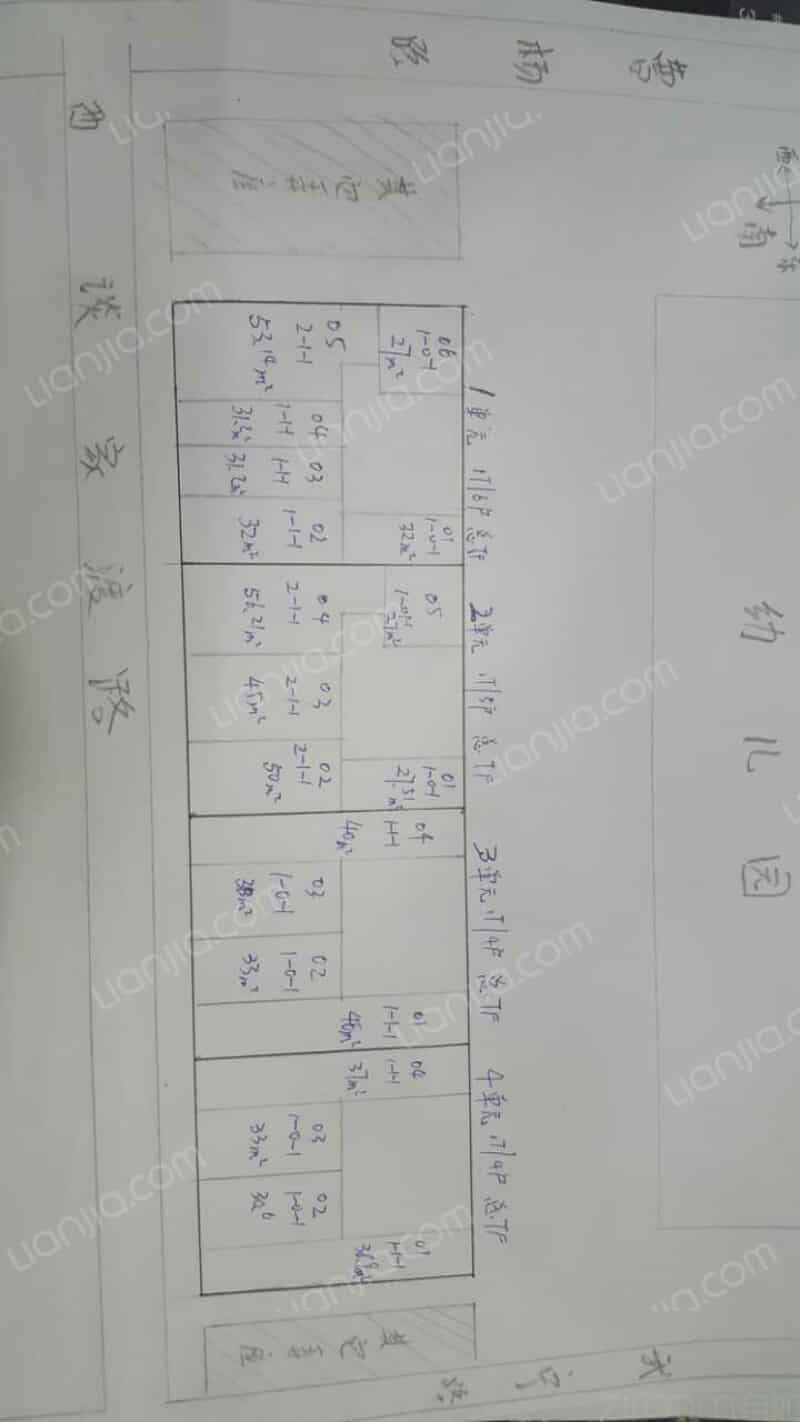 曹 杨 路
西
南
东
其它主
幼儿园
1单元 1T/6户 总7F
06
1-0-1
27m²
05
2-1-1
53.14m²
04
1-1-1
31.3m²
03
1-1-1
31.2m²
02
1-1-1
32m²
01
1-0-1
32m²
2单元 1T/5户 总7F
05
27m²
04
2-1-1
03
2-1-1
45m²
02
2-1-1
50m²
01
1-0-1
27.51m²
3单元 1T/4户 总7F
04
1-1-1
40m²
03
1-0-1
38m²
02
1-0-1
33m²
01
1-1-1
4单元 1T/4户 总7F
04
1-1-1
37m²
03
1-0-1
33m²
02
1-0-1
01
1-1-1
其它
武宁路
谈家渡路
lianjia.com
lianjia.com
lianjia.com
lianjia.com
lianjia.com
lianjia.com
lianjia.com
lianjia.com
lianjia.com
lianjia.com